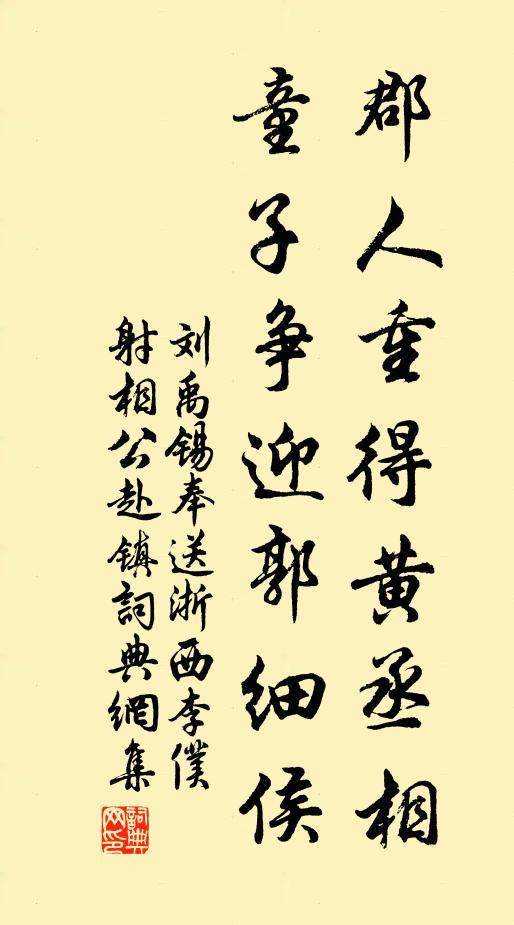 郡人重得黄丞相
童子争迎郭细侯
刘禹锡奉送浙西李僕
射相公赴镇詞典網集
詞典網印